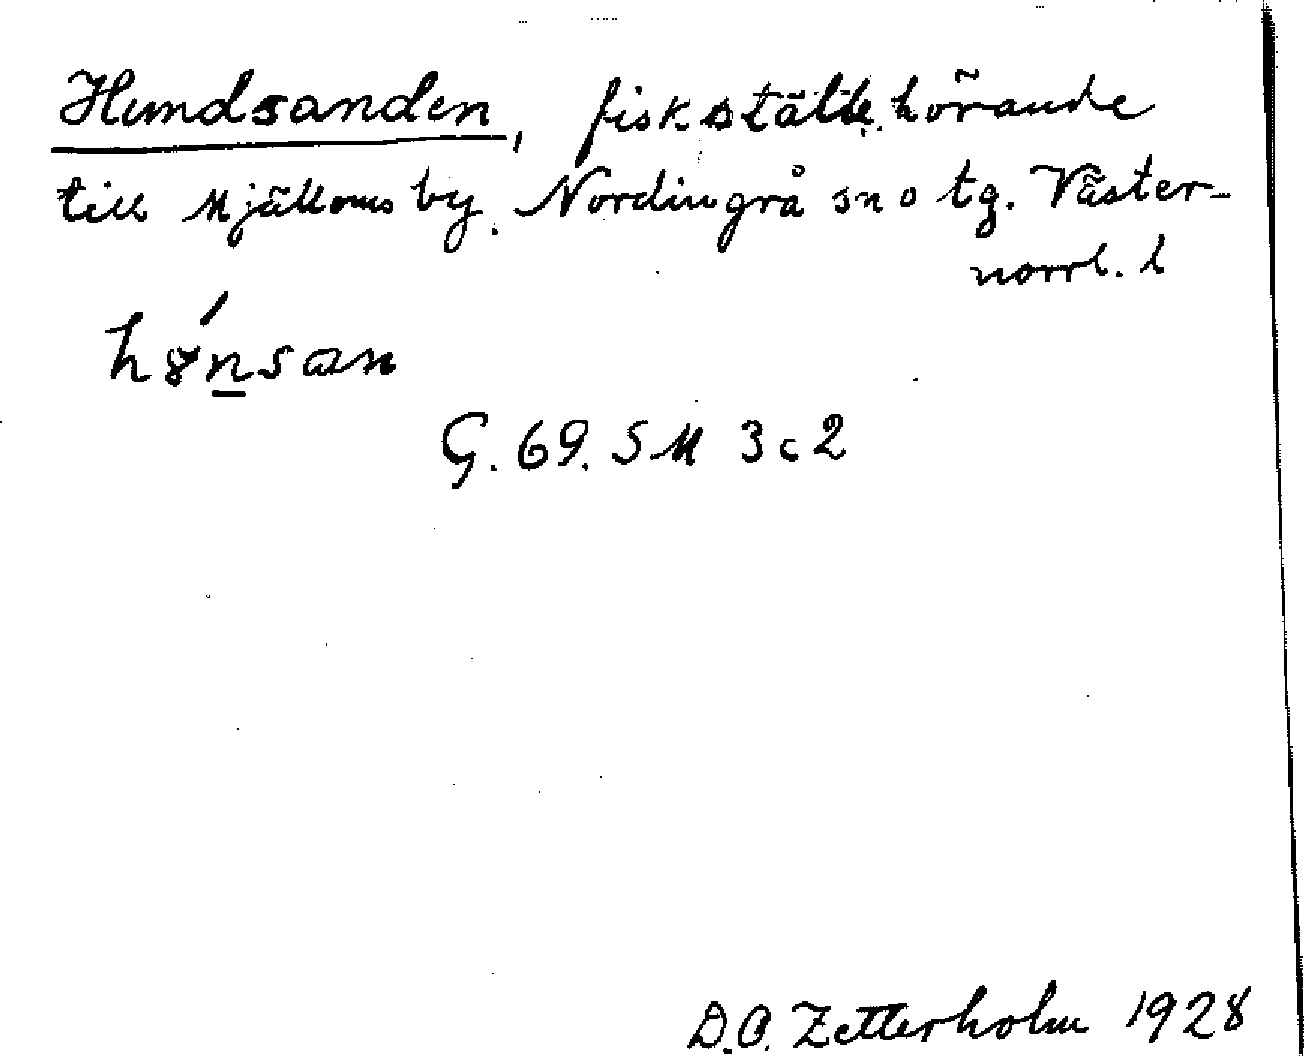 Hundsanden, fiskställe hörande
till Mjälloms by. Nordingrå sn o tg. Väster-
norrl. l
G. 69. SM 3c2
D.O. Zetterholm 1928